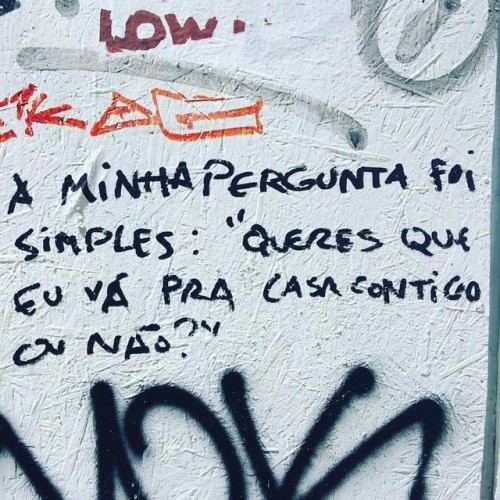 LOW
A MINHA PERGUNTA FOI
SIMPLES: "QUERES QUE
EU VÁ PRA CASA CONTIGO
OU NÃO?"